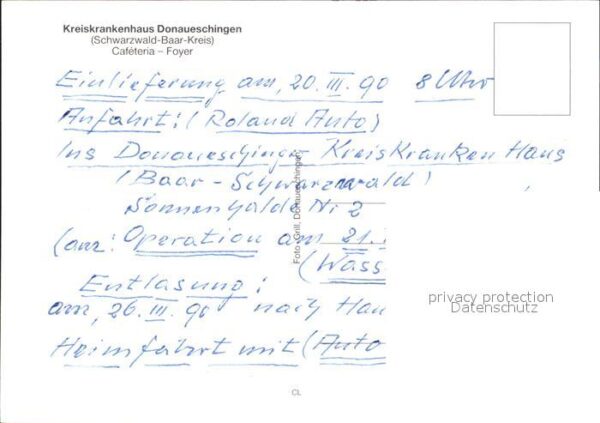 Kreiskrankenhaus Donaueschingen
(Schwarzwald-Baar-Kreis)
Caféteria – Foyer
Einlieferung am, 20. III. 90 8 Uhr
Anfahrt: (Roland Auto)
Ins Donaueschinger KreisKranken Haus
(Baar - Schwarzwald)
Sonnenhalde Nr 2
(am: Operation am 21.
(Wass
Entlasung:
am, 26. III. 90 nach Hau
Heimfahrt mit (Auto
Foto: Grill, Donaueschingen
privacy protection
Datenschutz
CL